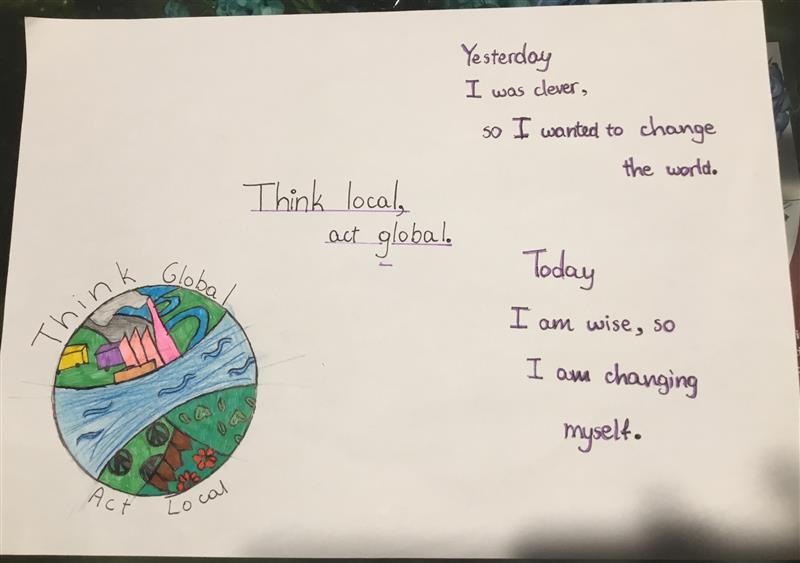 Yesterday
I was clever,
so I wanted to change
the world.
Think local,
act global.
Today
I am wise, so
I am changing
myself.
Think Global
Act Local